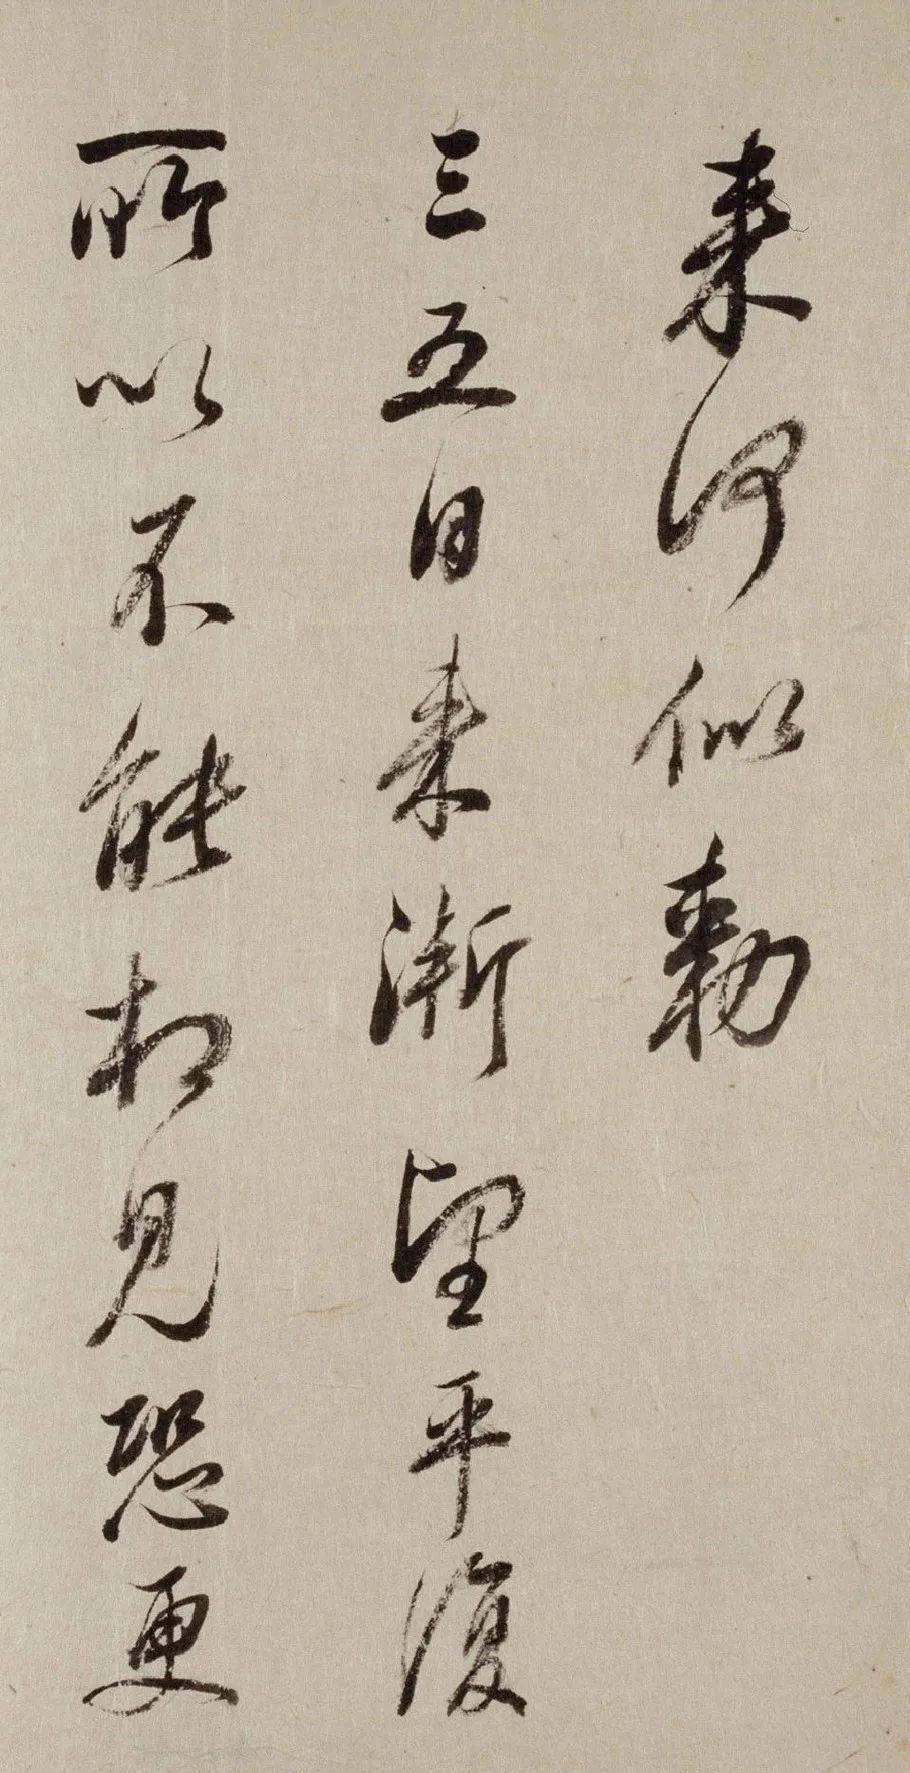 来何似勅
三五日来漸望平復
所以不能相見恐更